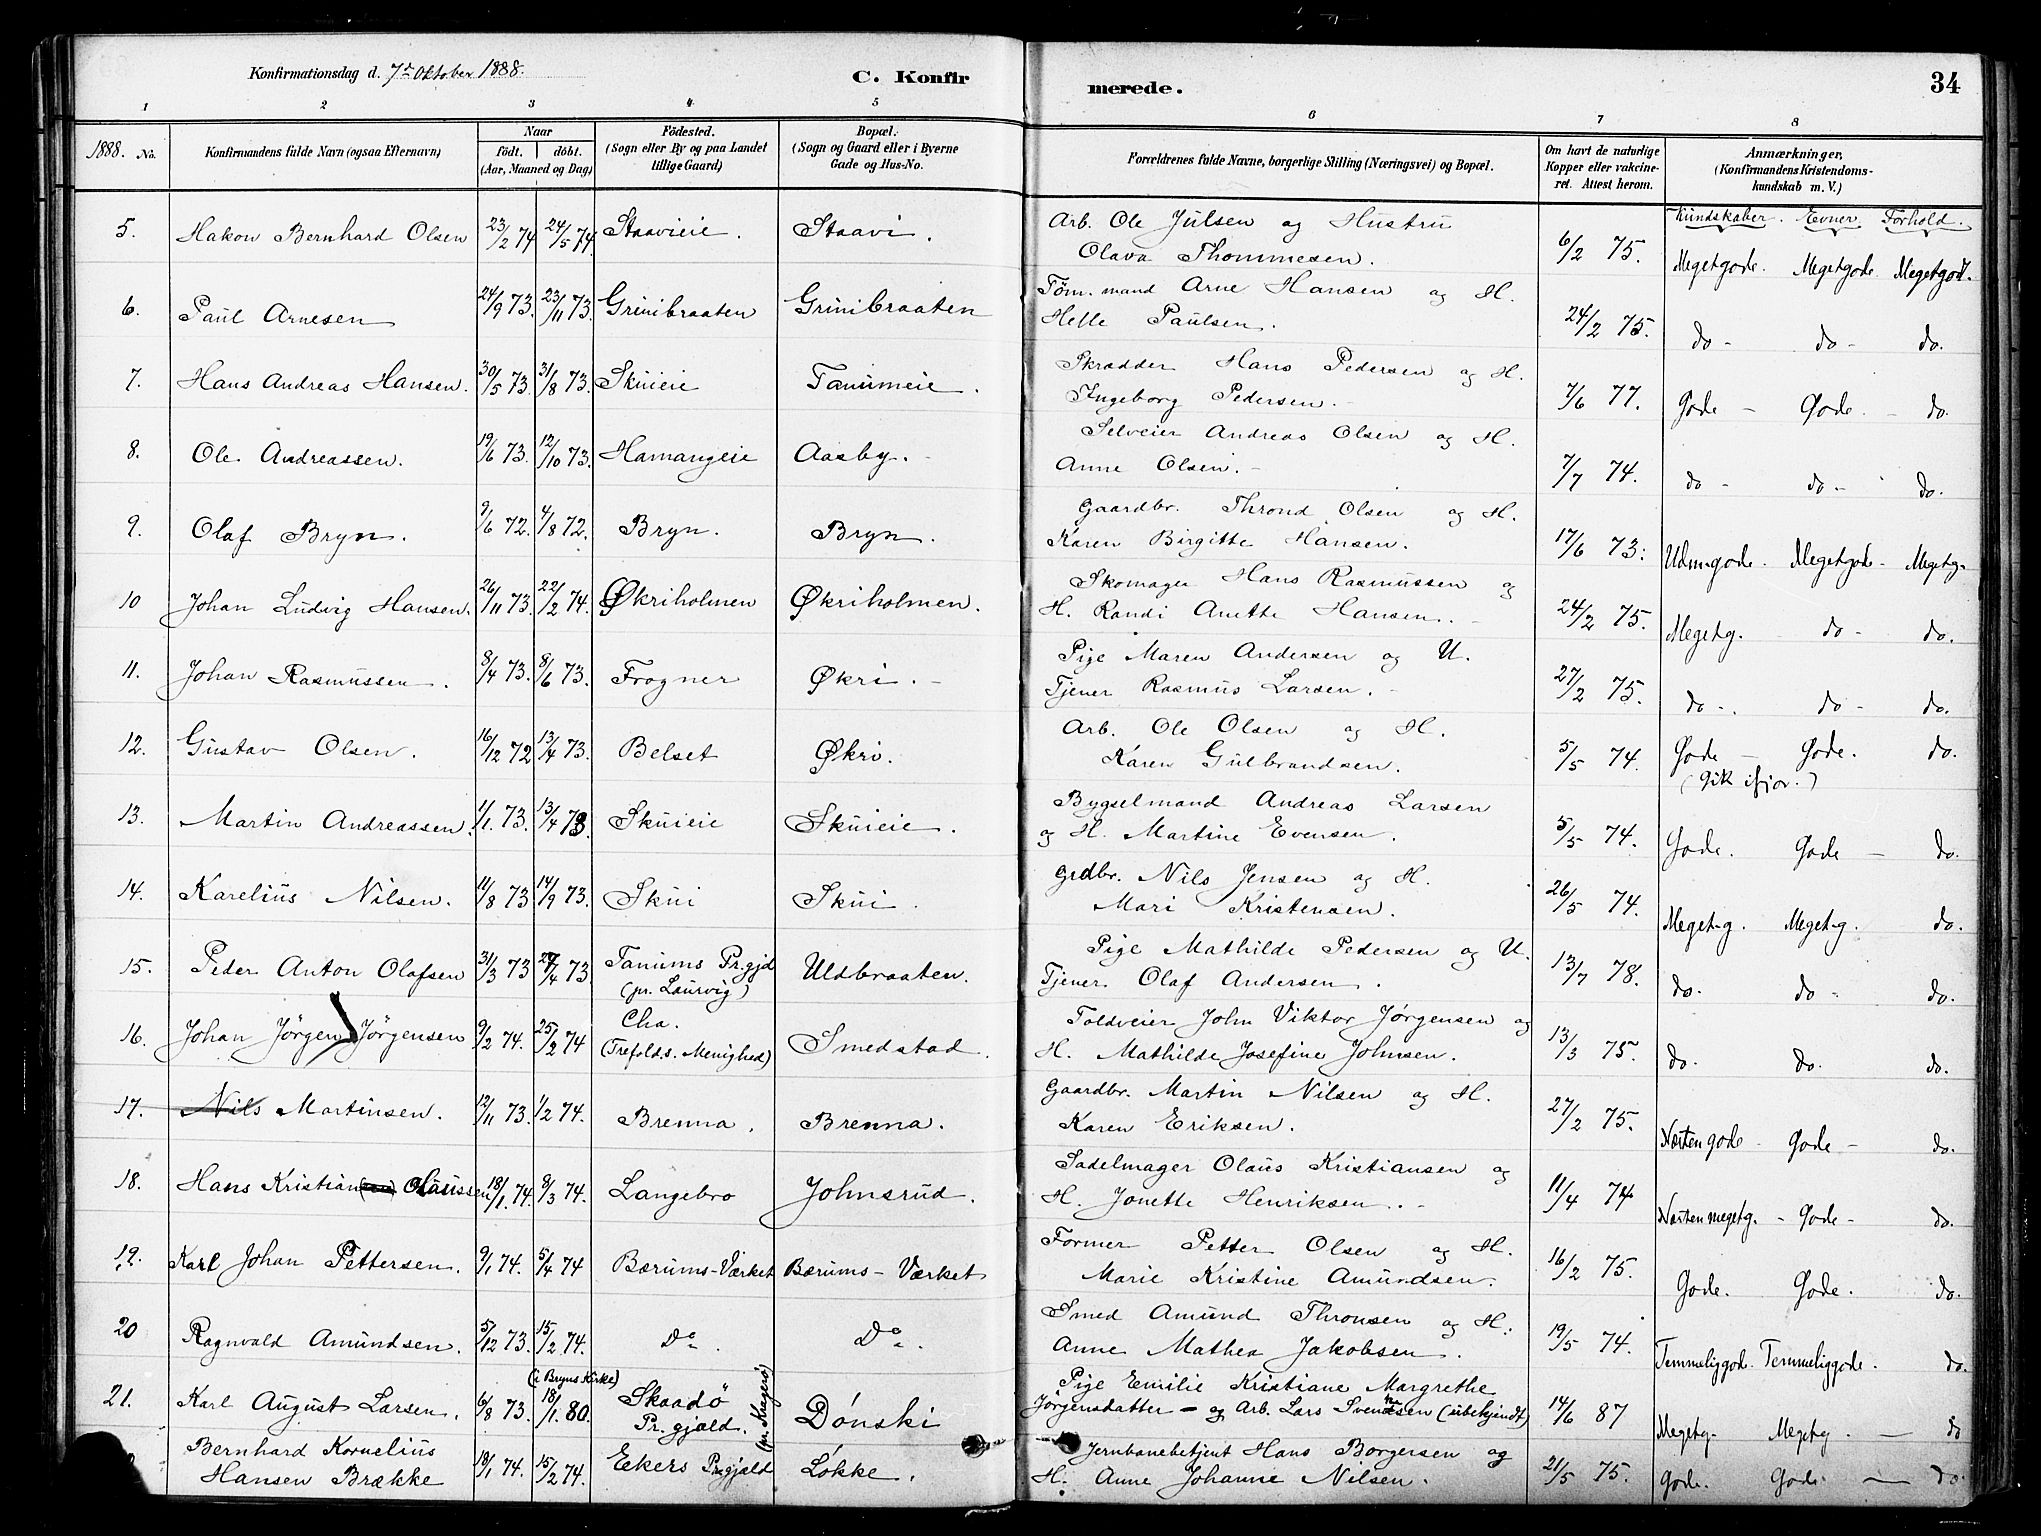 Konfirmationsdag d. 7de Oktober 1888.
C. Konfirmerede.
34
1 2 3 4 5 6 7 8
1888. No.
Konfirmandens fulde Navn (ogsaa Efternavn)
Naar
födt. döbt.
(Aar, Maaned og Dag)
Födested.
(Sogn eller By og paa Landet
tillige Gaard)
Bopæl.
(Sogn og Gaard eller i Byerne
Gade og Hus-No.
Forældrenes fulde Navne, borgerlige Stilling (Næringsvei) og Bopæl.
Om havt de naturlige
Kopper eller vakcine-
ret. Attest herom.
Anmærkninger,
(Konfirmandens Kristendoms-
kundskab m. V.)
Kundskaber. Evner. Forhold.
5. Hakon Bernhard Olsen 23/2 74 24/5 74. Staavieie. Staavi. Arb. Ole Julsen og Hustru
Olava Thommesen. 6/2 75. Megetgode. Megetgode. Megetgodt.
6. Paul Arnesen 24/9 73. 23/11 73. Grinibraaten Grinibraaten Töm.mand Arne Hansen og H.
Helle Paulsen. 24/2 75. do - do - do.
7. Hans Andreas Hansen. 30/5 73. 31/8 73. Skuieie Tanumeie. Skrædder Hans Pedersen og H.
Ingeborg Pedersen. 7/6 77. Gode - Gode. - do.
8. Ole Andreassen. 19/6 73. 12/10 73. Hamangeie Aasby. Selveier Andreas Olsen og H.
Anne Olsen. 7/7 74. do - do - do.
9. Olaf Bryn. 9/6 72. 4/8 72. Bryn. Bryn. Gaardbr. Thrond Olsen og H.
Karen Birgitte Hansen. 17/6 73. Udm.gode. Megetgode - Megetg.
10 Johan Ludvig Hansen. 26/11 73. 22/2 74. Økriholmen Økriholmen. Skomager Hans Rasmussen og
H. Randi Anette Hansen. 24/2 75. Megetg. - do - do.
11. Johan Rasmussen. 8/4 73. 8/6 73. Frogner Økri. Pige Maren Andersen og U.
Tjener Rasmus Larsen. 27/2 75. do - do - do.
12. Gustav Olsen. 16/12 72 13/4 73. Belset Økri. Arb. Ole Olsen og H.
Karen Gulbrandsen. 5/5 74. Gode - Gode. do.
(Gik ifjor.)
13. Martin Andreassen. 1/1. 73. 13/4 73. Skuieie Skuieie. Bygselmand Andreas Larsen
og H. Martine Evensen. 5/5 74. Gode. Gode - do.
14. Karelius Nilsen. 11/8 73 14/9 73. Skui Skui. Grdbr. Nils Jensen og H.
Mari Kristensen. 26/5 74. Meget-g. Meget-g. do.
15. Peder Anton Olafsen 31/3 73 27/4 73. Tanums Pr.gjd
(pr. Laurvig) Uldbraaten. Pige Mathilde Pedersen og U.
Tjener Olaf Andersen. 13/7 78. do. do - do.
16. Johan Jörgen Jörgensen 9/2 74. 25/2 74 Cha.
(Trefolds. Menighed) Smedstad. Toldveier John Viktor Jörgensen og
H. Mathilde Josefine Johnsen. 13/3 75. do. do. do.
17. Nils Martinsen. 12/11 73. 1/2 74. Brenna. Brenna. Gaardbr. Martin Nilsen og H.
Karen Eriksen. 27/2 75. Næsten gode - Gode - do.
18. Hans Kristian Olaussen 18/1. 74. 8/3 74. Langebro Johnsrud. Sadelmager Olaus Kristiansen og
H. Jonette Henriksen. 11/4 74 Næsten megetg. - Gode - do.
19. Karl Johan Pettersen. 9/1 74. 5/4 74 Bærums-Værket Bærums-Værket Former Petter Olsen og H.
Marie Kristine Amundsen. 16/2 75. Gode. Gode. do.
20 Ragnvald Amundsen. 5/12 73. 15/2 74. Do. Do. Smed Amund Thronsen og H.
Anne Mathea Jakobsen. 19/5 74. Temmeliggode. Temmeliggode. do.
21. Karl August Larsen. 6/8 73. (i Bryns Kirke) 18/1. 80. Skaadö
Pr.gjæld. (pr. Kragerö) Dönski Pige Emilie Kristiane Margrethe
Jörgensdatter - og Arb. Lars Svendsen (ubekjendt) 14/6 87 Megetg. Megetg. - do
Bernhard Kornelius
Hansen Brække 18/1 74. 15/2 74. Ekers Pr.gjæld Lökke. Jernbanebetjent Hans Borgersen og
H. Anne Johanne Nilsen. 21/5 75. Gode. Gode - do.